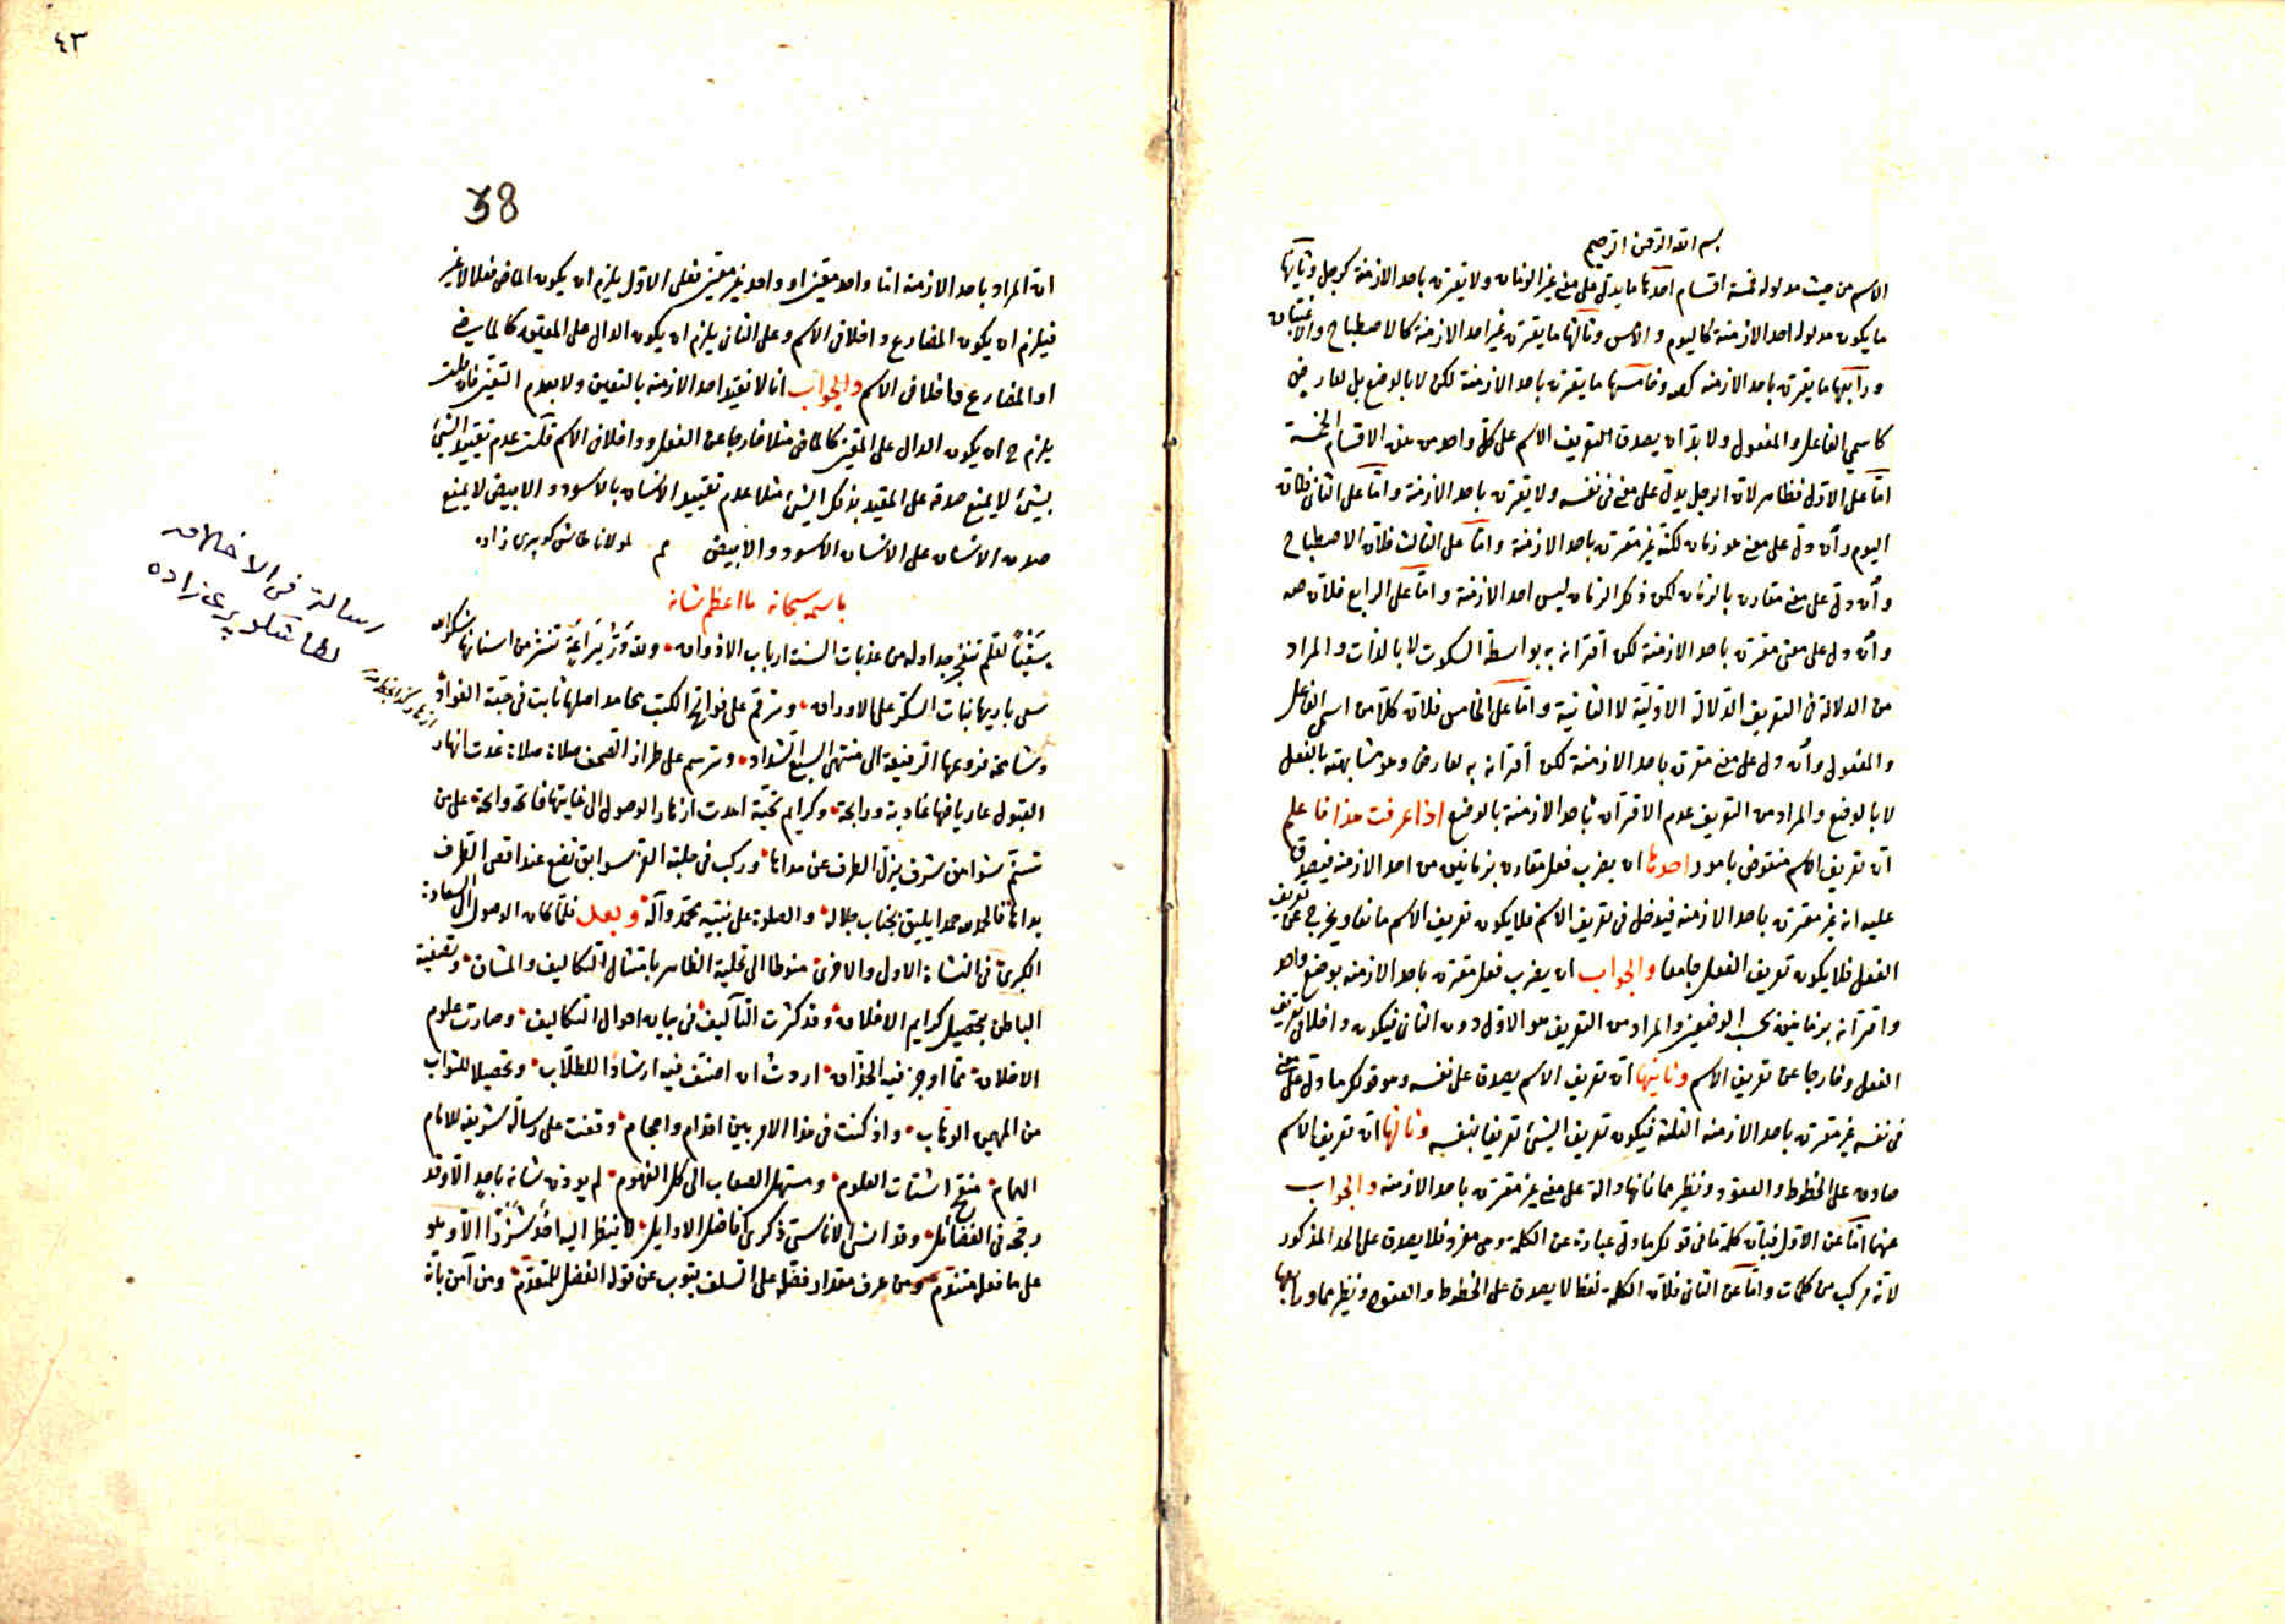 بسم الله الرحمن الرحيم
الاسم من حيث مدلوله خمسة اقسام احدها ما يدل على معنى غير الزمان ولا يقترن باحد الازمنة كرجل وثانيها
ما يكون مدلوله احد الازمنة كاليوم والامس وثالثها ما يقترن غير احد الازمنة كالاصطباح والاغتباق
ورابعها ما يقترن باحد الازمنه كصه وخامسها ما يقترن باحد الازمنة لكن لا بالوضع بل لعارض
كاسمي الفاعل والمفعول ولا بد ان يصدق التعريف الاسم على كل واحد من هذه الاقسام الخمسة
اما على الاول فظاهر لان الرجل يدل على معنى فى نفسه ولا يقترن باحد الازمنة واما على الثانى فلان
اليوم وان دل على معنى هو زمان لكنه غير مقترن باحد الازمنة واما على الثالث فلان الاصطباح
وان دل على معنى مقارن بالزمان لكن ذلك الزمان ليس احد الازمنة واما على الرابع فلان صه
وان دل على معنى مقترن باحد الازمنة لكن اقترانه به بواسطة السكوت لا بالذات والمراد
من الدلالة فى التعريف الدلالة الاولية لا الثانية واما على الخامس فلان كلا من اسمى الفاعل
والمفعول وان دل على معنى مقترن باحد الازمنة لكن اقترانه به لعارض وهو مشابهته بالفعل
لا بالوضع والمراد من التعريف عدم الاقتران باحد الازمنة بالوضع اذا عرفت هذا فاعلم
ان تعريف الاسم منقوض بامور احدها ان يضرب فعل مقارن بزمانين من احد الازمنه فيصدق
عليه انه غير مقترن باحد الازمنه فيدخل فى تعريف الاسم فلا يكون تعريف الاسم مانعا ويخرج عن تعريف
الفعل فلا يكون تعريف الفعل جامعا والجواب ان يضرب فعل مقترن باحد الازمنه بوضع واحد
واقترانه بزمانين بحسب الوضعين والمراد من التعريف هو الاول دون الثانى فيكون داخلا فى تعريف
الفعل وخارجا عن تعريف الاسم وثانيها ان تعريف الاسم يصدق على نفسه وهو قولك ما دل على معنى
فى نفسه غير مقترن باحد الازمنه الثلثة فيكون تعريف الشئ تعريفا بنفسه وثالثها ان تعريف الاسم
صادق على الخطوط والعقود ونظيرهما فانها دالة على معنى غير مقترن باحد الازمنه والجواب
عنها اما عن الاول فبان كلمة ما فى قولك ما دل عبارة عن الكلمة وهى مفرد فلا يصدق على الحد المذكور
لانه مركب من كلمات واما عن الثانى فلان الكلمة لفظ لا يصدق على الخطوط والعقود ونظيرهما ورابعها
٤٣
38
ان المراد باحد الازمنة اما واحد معين او واحد غير معين فعلى الاول يلزم ان يكون الماضى فعلا لا غير
فيلزم ان يكون المضارع داخلا فى الاسم وعلى الثانى يلزم ان يكون الدال على المعين كالماضى
او المضارع داخلا فى الاسم والجواب انا لا نقيد احد الازمنه بالتعين ولا بعدم التعين فان قلت
يلزم ح ان يكون الدال على المعين كالماضى مثلا خارجا عن الفعل وداخلا فى الاسم قلت عدم تقييد الشئ
بشئ لا يمنع صدقه على المقيد بذلك الشئ مثلا عدم تقييد الانسان بالاسود والابيض لا يمنع
صدق الانسان على الانسان الاسود والابيض تم لمولانا طاش كوپرى زاده
باسمه سبحانه ما اعظم شانه
سقيا لقلم تنفجر جداوله من عذبات السنة ارباب الاذواق وتنثر من اسنانها
على الاوراق وترقم على فواتح الكتب محامد اصلها ثابت فى حبة الفؤاد
وشامخة فروعها الرفيعة الى منتهى السبع الشداد وترسم على طراز الصحف صلاة غدت انهار
القبول على رياضها غادية ورايحة وكرايم تحية اهدت ازهار الوصول الى غايتها فائحة على من
تسنم من شرف يزل الطرف عن مداها وركب فى حلبة العز سوابق تقع عند اقصى الطرف
يداها فالحمد لله حمدا يليق بجناب جلاله والصلوة على نبيه محمد وآله وبعد فلما كان الوصول الى السعادة
الكبرى فى النشاة الاولى والاخرى منوطا الى تحلية الظاهر بامتثال التكاليف والمشاق وتصفية
الباطن بتحصيل كرايم الاخلاق وقد كثرت التآليف فى بيان احوال التكاليف وصارت علوم
الاخلاق مما اوجز فيه الحذاق اردت ان اصنف فيه ارشادا للطلاب وتحصيلا للثواب
من المهيمن الوهاب واذ كنت فى هذا الامر بين اقدام واحجام وقفت على رسالة شريفة للامام
الهمام منقح اشتات العلوم ومسهل الصعاب الى كل الفهوم لم يوزن شانه باحد الا وقد
رجح فى الفضائل وقد انسى الاناسى ذكرى افاضل الاوايل لا ينظر اليه احد شزرا الا وهو
على ما فعله متندم ومن عرف مقدار فضله على السلف يتوب عن قوله الفضل للمتقدم ومن آمن بانه
رسالة فى الاخلاق
لطاشكوپرى زاده